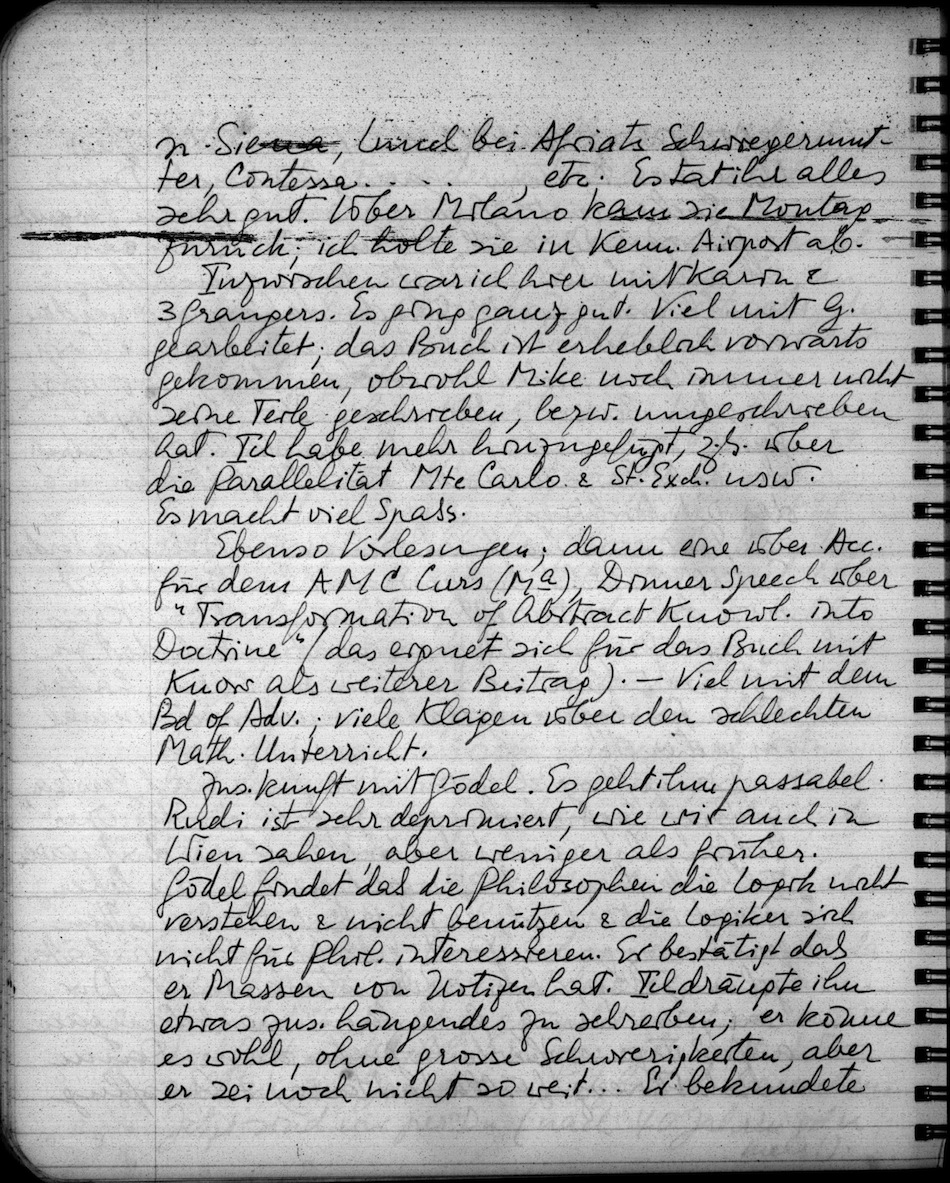 n. Siena, Lunch bei Afriats Schwiegermut-
ter, Contessa . . . . , etc. Es tat ihr alles
sehr gut. Über Milano kam sie Montag
zurück; ich holte sie in Kenn. Airport ab.
Inzwischen war ich hier mit Karin &
3 Grangers. Es ging ganz gut. Viel mit G.
gearbeitet; das Buch ist erheblich vorwärts
gekommen, obwohl Mike noch immer nicht
seine Teile geschrieben, bezw. umgeschrieben
hat. Ich habe mehr hinzugefügt, z.B. über
die Parallelität Mte Carlo & St. Exch. usw.
Es macht viel Spass.
Ebenso Vorlesungen; dann eine über Acc.
für dem AMC Curs (Ma), Dinner Speech über
"Transformation of Abstract Knowl. into
Doctrine" (das eignet sich für das Buch mit
Know als weiterer Beitrag). — Viel mit dem
Bd of Adv.; viele Klagen über den schlechten
Math. Unterricht.
Zus.kunft mit Gödel. Es geht ihm passabel.
Rudi ist sehr deprimiert, wie wir auch in
Wien sahen, aber weniger als früher.
Gödel findet daß die Philosophen die Logik nicht
verstehen & nicht benützen & die Logiker sich
nicht für Phil. interessieren. Er bestätigt daß
er Massen von Notizen hat. Ich drängte ihn
etwas zus.hängendes zu schreiben; er könne
es wohl, ohne grosse Schwierigkeiten, aber
er sei noch nicht so weit... Er bekundete